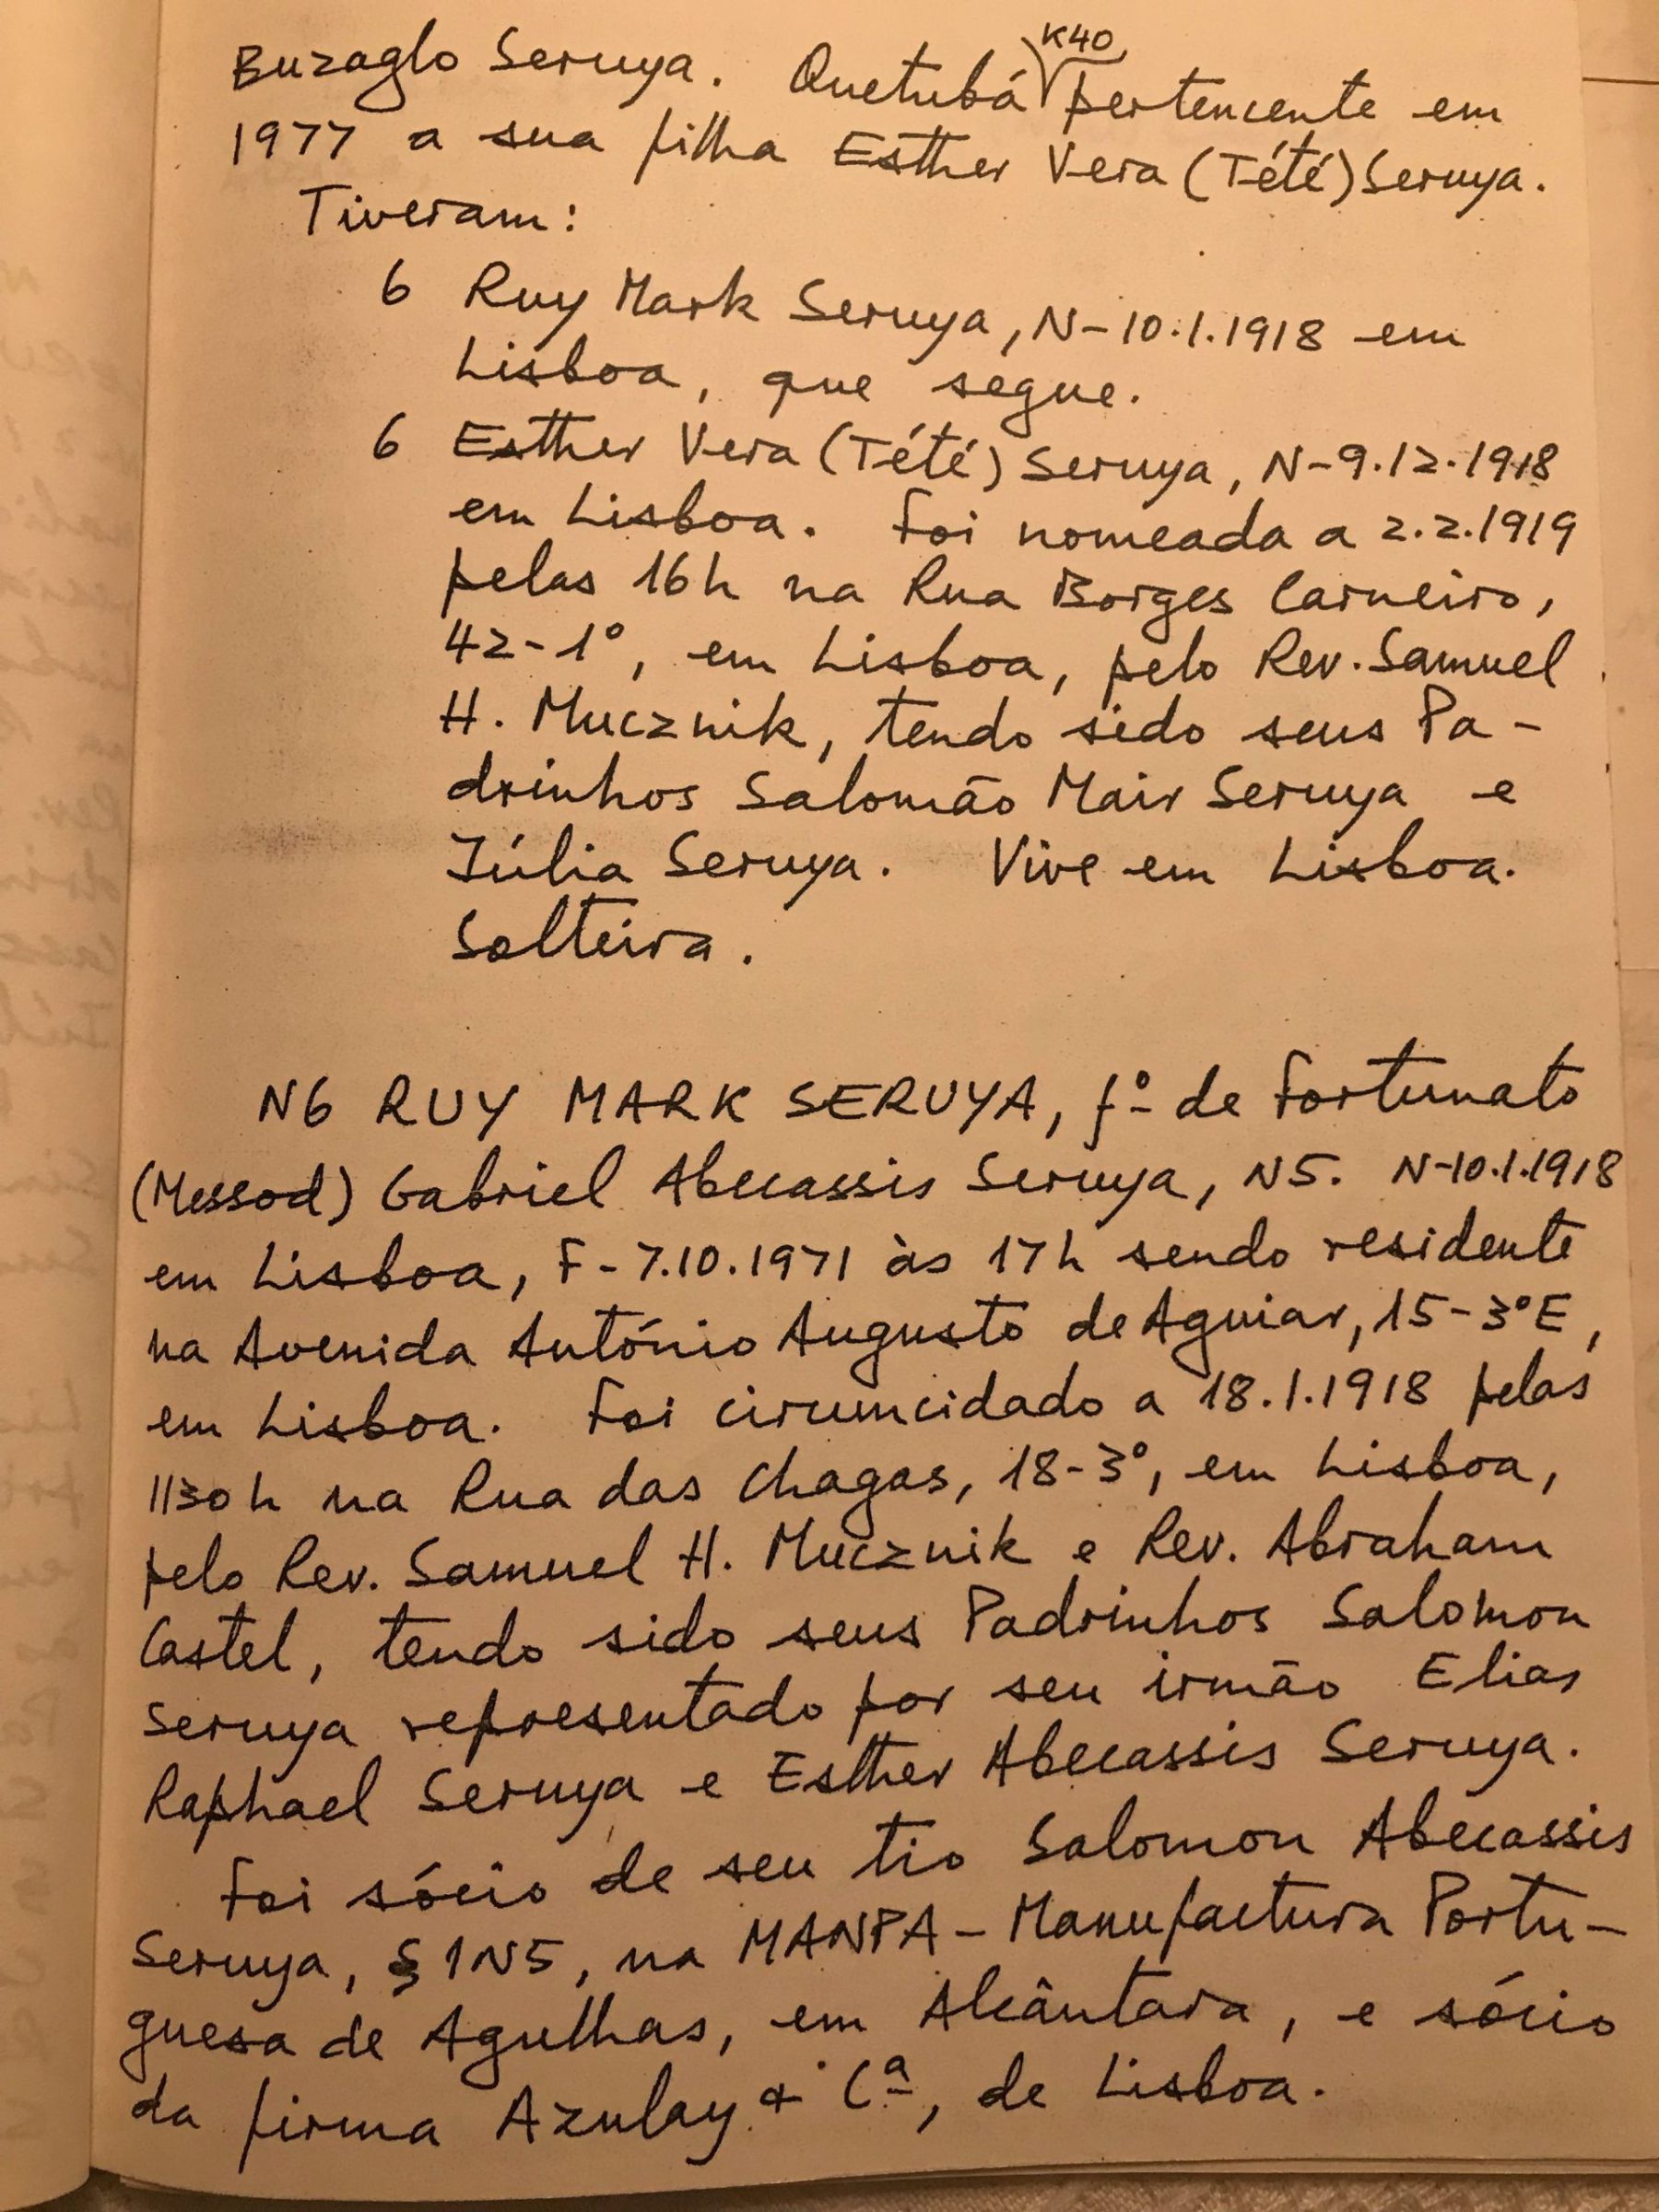 Buzaglo Seruya. Quetubá K40 pertencente em
1977 a sua filha Esther Vera (Tété) Seruya.
Tiveram:
6 Ruy Mark Seruya, N-10.1.1918 em
Lisboa, que segue.
6 Esther Vera (Tété) Seruya, N-9.12.1918
em Lisboa. Foi nomeada a 2.2.1919
pelas 16h na Rua Borges Carneiro,
42-1º, em Lisboa, pelo Rev. Samuel
H. Mucznik, tendo sido seus Pa-
drinhos Salomão Mair Seruya e
Júlia Seruya. Vive em Lisboa.
Solteira.
N6 RUY MARK SERUYA, fº de Fortunato
(Messod) Gabriel Abecassis Seruya, N5. N-10.1.1918
em Lisboa, F-7.10.1971 às 17h sendo residente
na Avenida António Augusto de Aguiar, 15-3ºE,
em Lisboa. Foi circuncidado a 18.1.1918 pelas
1130h na Rua das Chagas, 18-3º, em Lisboa,
pelo Rev. Samuel H. Mucznik e Rev. Abraham
Castel, tendo sido seus Padrinhos Salomon
Seruya representado por seu irmão Elias
Raphael Seruya e Esther Abecassis Seruya.
Foi sócio de seu tio Salomon Abecassis
Seruya, §1N5, na MANPA - Manufactura Portu-
guesa de Agulhas, em Alcântara, e sócio
da firma Azulay & Cª, de Lisboa.